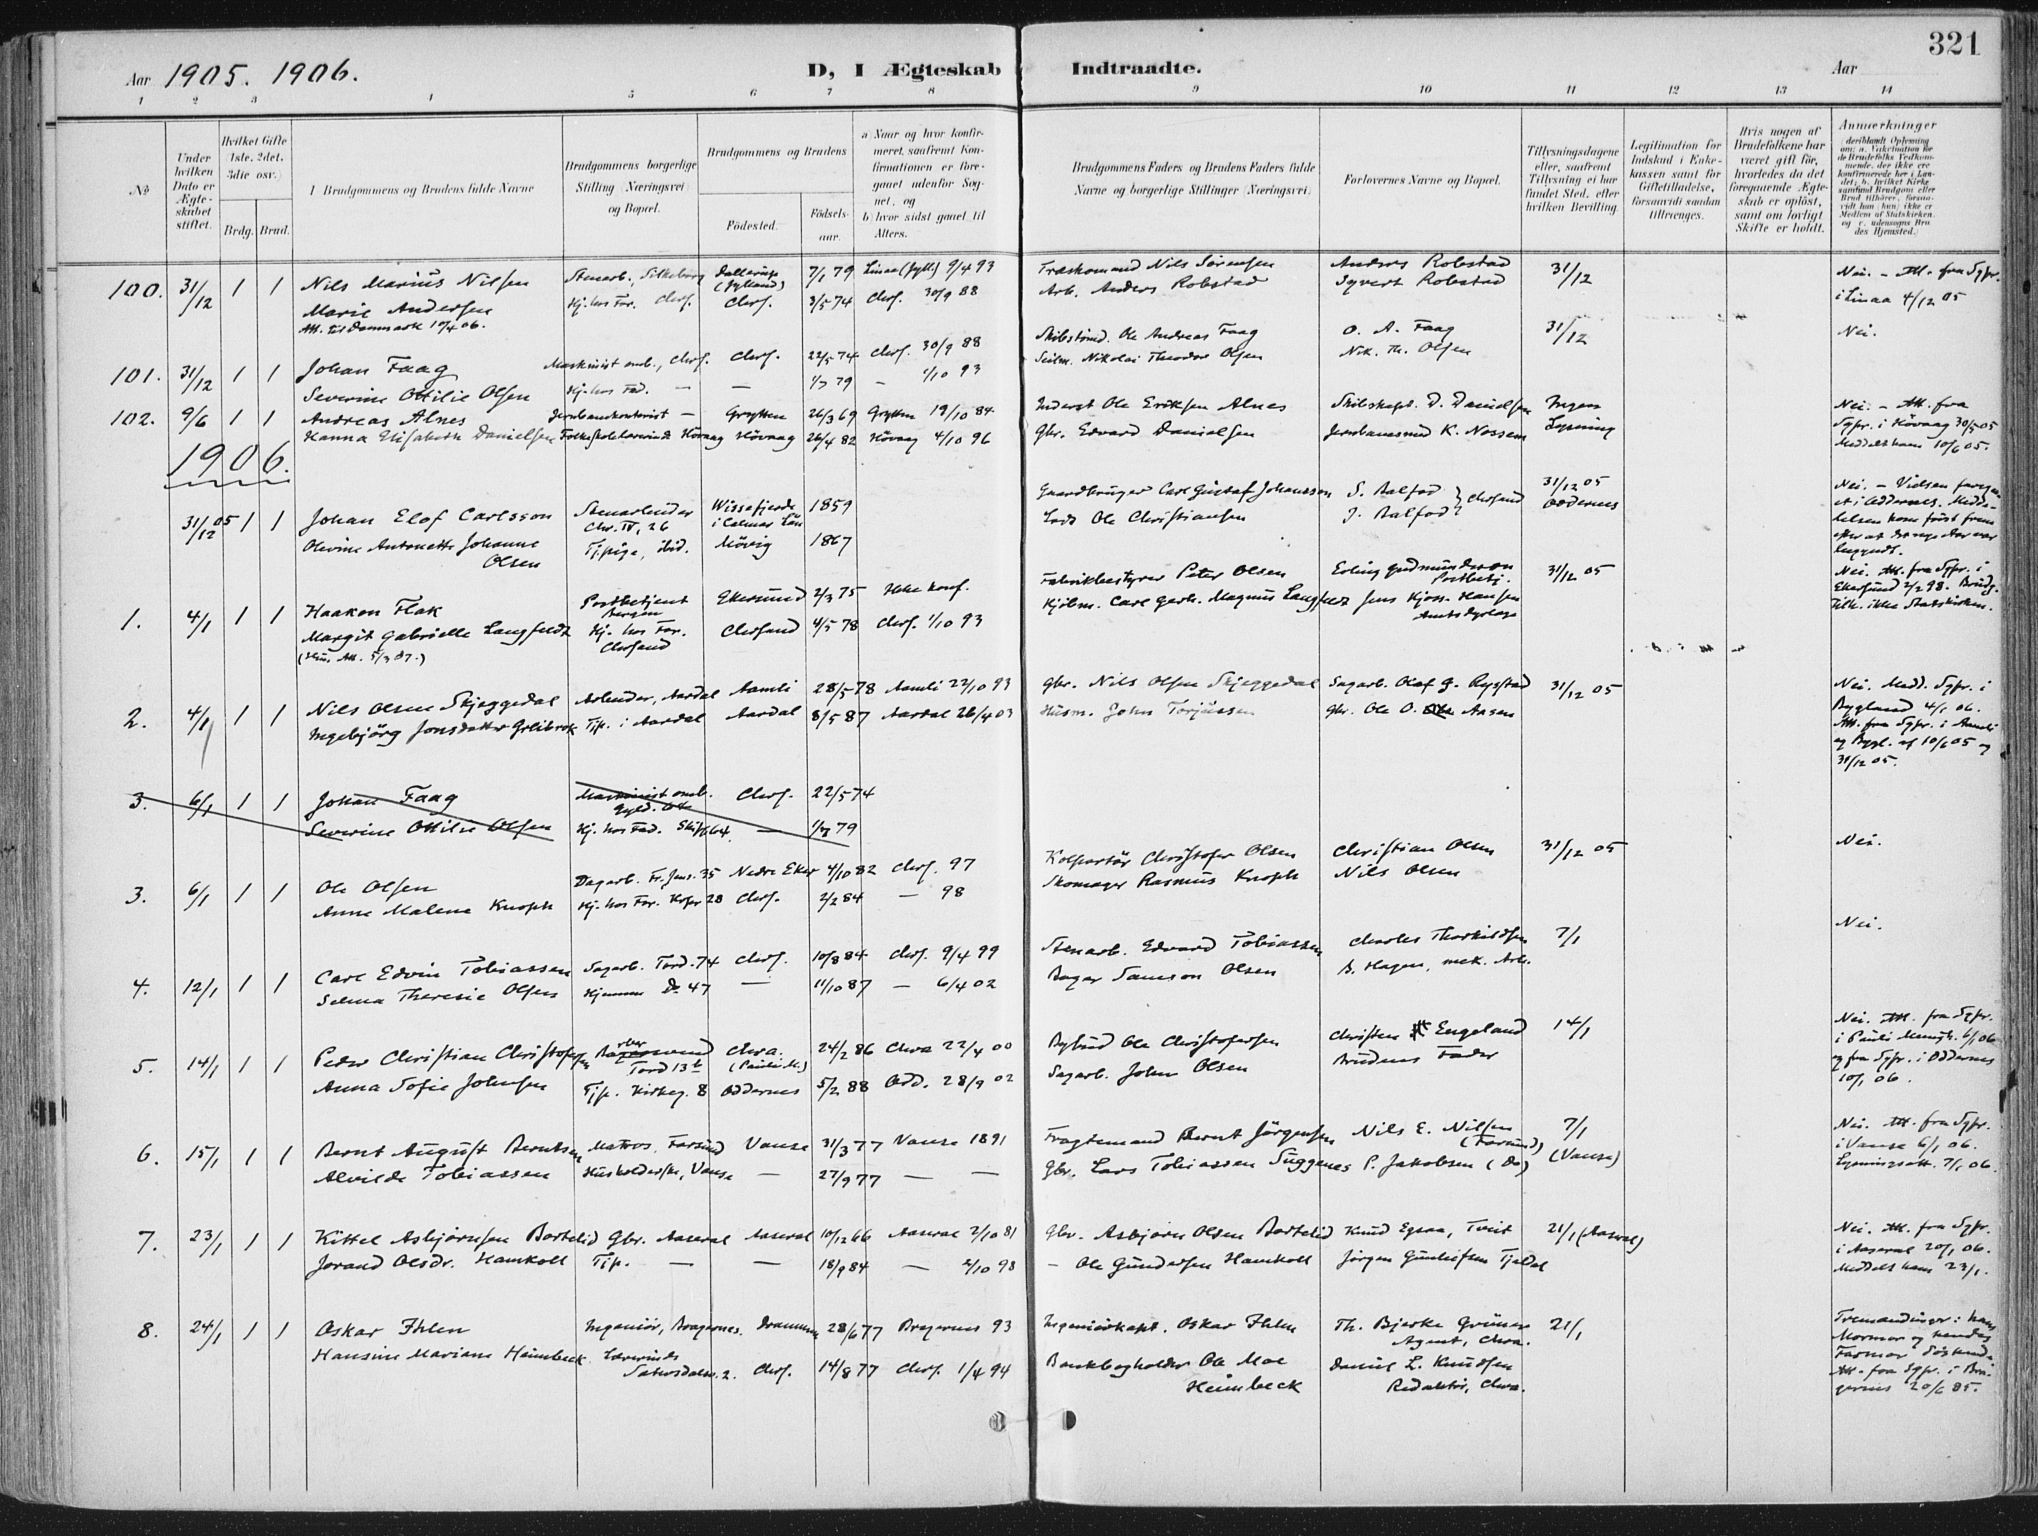 321
Aar 1905. 1906.
D, I Ægteskab Indtraadte.
Aar
1 2 3 4 5 6 7 8 9 10 11 12 13 14
No
Under hvilken Dato er Ægteskabet stiftet.
Hvilket Gifte 1ste, 2det, 3die osv.)
Brdg. Brud.
Brudgommens og Brudens fulde Navne
Brudgommens borgerlige Stilling (Næringsvei) og Bopæl.
Brudgommens og Brudens
Fødested.
Fødsels-aar.
a) Naar og hvor konfirmeret, saafremt Konfirmationen er foregaaet udenfor Sognet, og
b) hvor sidst gaaet til Alters.
Brudgommens Faders og Brudens Faders fulde Navne og borgerlige Stillinger (Næringsvei).
Forlovernes Navne og Bopæl.
Tillysningsdagene eller, saafremt Tillysning ei har fundet Sted, efter hvilken Bevilling.
Legitimation for Indskud i Enkekassen samt for Giftetilladelse, forsaavidt saadan tiltrænges.
Hvis nogen af Brudefolkene har været gift før, hvorledes da det foregaaende Ægteskab er opløst, samt om lovligt Skifte er holdt.
Anmerkninger
100. 31/12 1 1 Nils Marius Nilsen Stenarb., Silkeborg (Jylland) 7/1 79 Linaa (Jyll.) 9/4 93 Nils Sörensen Anders Robstad 31/12 Nei. - Att. fra Sgpr.
Marie Andersen Hj. hos For. Chrs. Chrs. 3/5 74 Chrs. 30/9 88 Arb. Anders Robstad Syvert Robstad i Linaa 4/12 05
Att. til Danmark 17/4 06.
101. 31/12 1 1 Johan Faag Maskinist omb., Chrs. Chrs. 22/5 74 Chrs. 30/9 88 Ole Andreas Faag O. A. Faag 31/12 Nei.
Severine Ottilie Olsen Hj. hos Fad. — — 1/7 79 — 1/10 93 Seilm. Nikolai Theodor Olsen Nik. Th. Olsen
102. 9/6 1 1 Andreas Alnes Jernbanekontorist — Grytten 26/3 69 Grytten 19/10 84 Inderst Ole Eriksen Alnes Skibskapt. D. Danielsen Ingen Nei. - Att. fra
Hanna Elisabeth Danielsen Hövaag Hövaag 26/4 82 Hövaag 4/10 96 Gbr. Edvard Danielsen K. Nossem Lysning Sgpr. i Hövaag 30/5 05
Meddelt ham 10/6 05.
1906.
31/12 05 1 1 Johan Elof Carlsson Stenarbeider Wissefjerde 1859 Gaardbruger Carl Gustaf Johansson S. Balfod 31/12 05 Nei. -
Chr. IV, 26 i Calmar Län Lods Ole Christiansen J. Balfod Chrsand Oddernes
Olevine Antonette Johanne Tj.pige, ibid. Mövig 1867
Olsen
1. 4/1 1 1 Haakon Flak Postbetjent Ekersund 2/3 75 Ikke konf. Fabrikbestyrer Peter Olsen Erling Gudmundson 31/12 05 Nei. Att. fra Sgpr. i
Bergen Postbetj. Ekersund 2/2 98. Brudg.
Margit Gabrielle Langfeldt Hj. hos For. Chrsand 4/5 78 Chrs. 1/10 93 Kjöbm. Carl Gerh. Magnus Langfeldt Jens Kjos-Hansen Tilh. ikke Statskirken.
Chrsand Amtsdyrlæge
2. 4/1 1 1 Nils Olsen Skjeggedal Arbeider, Aardal Aamli 28/5 78 Aamli 22/10 93 Gbr. Nils Olsen Skjeggedal Sagarb. Olaf G. Rysstad 31/12 05 Nei. Medd. Sgpr. i
Ingebjörg Jonsdatter Greibrok Tjp. i Aardal Aardal 8/5 87 Aardal 26/4 03 Husm. John Torjussen Gbr. Ole O. Aasen Bygland 4/1 06.
Att. fra Sgpr. i Aamli
og Bygl. af 10/6 05 og
31/12 05.
3. 6/1 1 1 Johan Faag Maskinist omb. Chrs. 22/5 74
Gyld. 64
Severine Ottilie Olsen Hj. hos Fad. Skipp. 64. — 1/7 79
3. 6/1 1 1 Ole Olsen Dagarb. Fr. Jens. 35 Nedre Eker 4/10 82 Chrs. 97 Kolportör Christofer Olsen Christian Olsen 31/12 05 Nei.
Anne Malene Knoph Hj. hos For. 28 Chrs. 2/2 84 — 98 Skomager Rasmus Knoph Nils Olsen
4. 12/1 1 1 Carl Edvin Tobiassen Sagarb. Tord. 74 Chrs. 10/8 84 Chrs. 9/4 99 Stenarb. Edvard Tobiassen Charles Thorkildsen 7/1 Nei.
Selma Theresie Olsen Hjemme Do 47 — 11/10 87 — 6/4 02 Bager Samson Olsen B. Hagen, mek. Arb.
5. 14/1 1 1 Peder Christian Christofersen Tord 13b Chra. (Pauli M.) 24/2 86 Chra 22/4 00 Bybud Ole Christofersen Christen Engeland 14/1 Nei. Att. fra Sgpr.
Anna Sofie Johnsen Tjp. Kirkeg. 8 Oddernes 5/2 88 Odd. 28/9 02 Sagarb. John Olsen Brudens Fader i Pauli Menigh. 6/1 06
og fra Sgpr. i Oddernes
10/1 06.
6. 15/1 1 1 Bernt August Berntsen Matros, Farsund Vanse 31/3 77 Vanse 1891 Fragtemand Bernt Jörgensen Nils E. Nilsen (Farsund) 7/1 Nei. Att. fra Sgpr.
Alvilde Tobiassen Husholderske, Vanse — 27/9 77 — — Gbr. Lars Tobiassen Suggenes P. Jakobsen (Do) (Vanse) i Vanse 6/1 06.
Lysningsatt. 7/1 06.
7. 23/1 1 1 Kittel Asbjörnsen Bortelid Gbr. Aaseral Aaseral 10/12 66 Aaseral 2/10 81 Gbr. Asbjörn Olsen Bortelid Knud Egsaa, Tveit 21/1 (Aaseral) Nei. Att. fra Sgpr.
Jorand Olsdr. Hamkoll Tjp. — — 18/9 84 — 2/10 98 — Ole Gundersen Hamkoll Jörgen Gunleifsen Tjeldal i Aaseral 20/1 06.
Meddelt ham 23/1.
8. 24/1 1 1 Oskar Ihlen Ingeniör, Bragernes. Drammen 28/6 77 Bragernes 93 Ingeniörkapt. Oskar Ihlen Th. Bjerke Grüner 21/1 Fremmedinger: hans
Hansine Mariane Heimbeck Lærerinde Agent, Chra. Mormor og hendes
Sætersdalsv. 2. Chrs. 14/8 77 Chrs. 1/4 94 Bankbogholder Ole Moe Daniel L. Knudsen Farmor Söskende.
Heimbeck Redaktör, Chra. Att. fra Sgpr. i Bragernes 20/6 85.